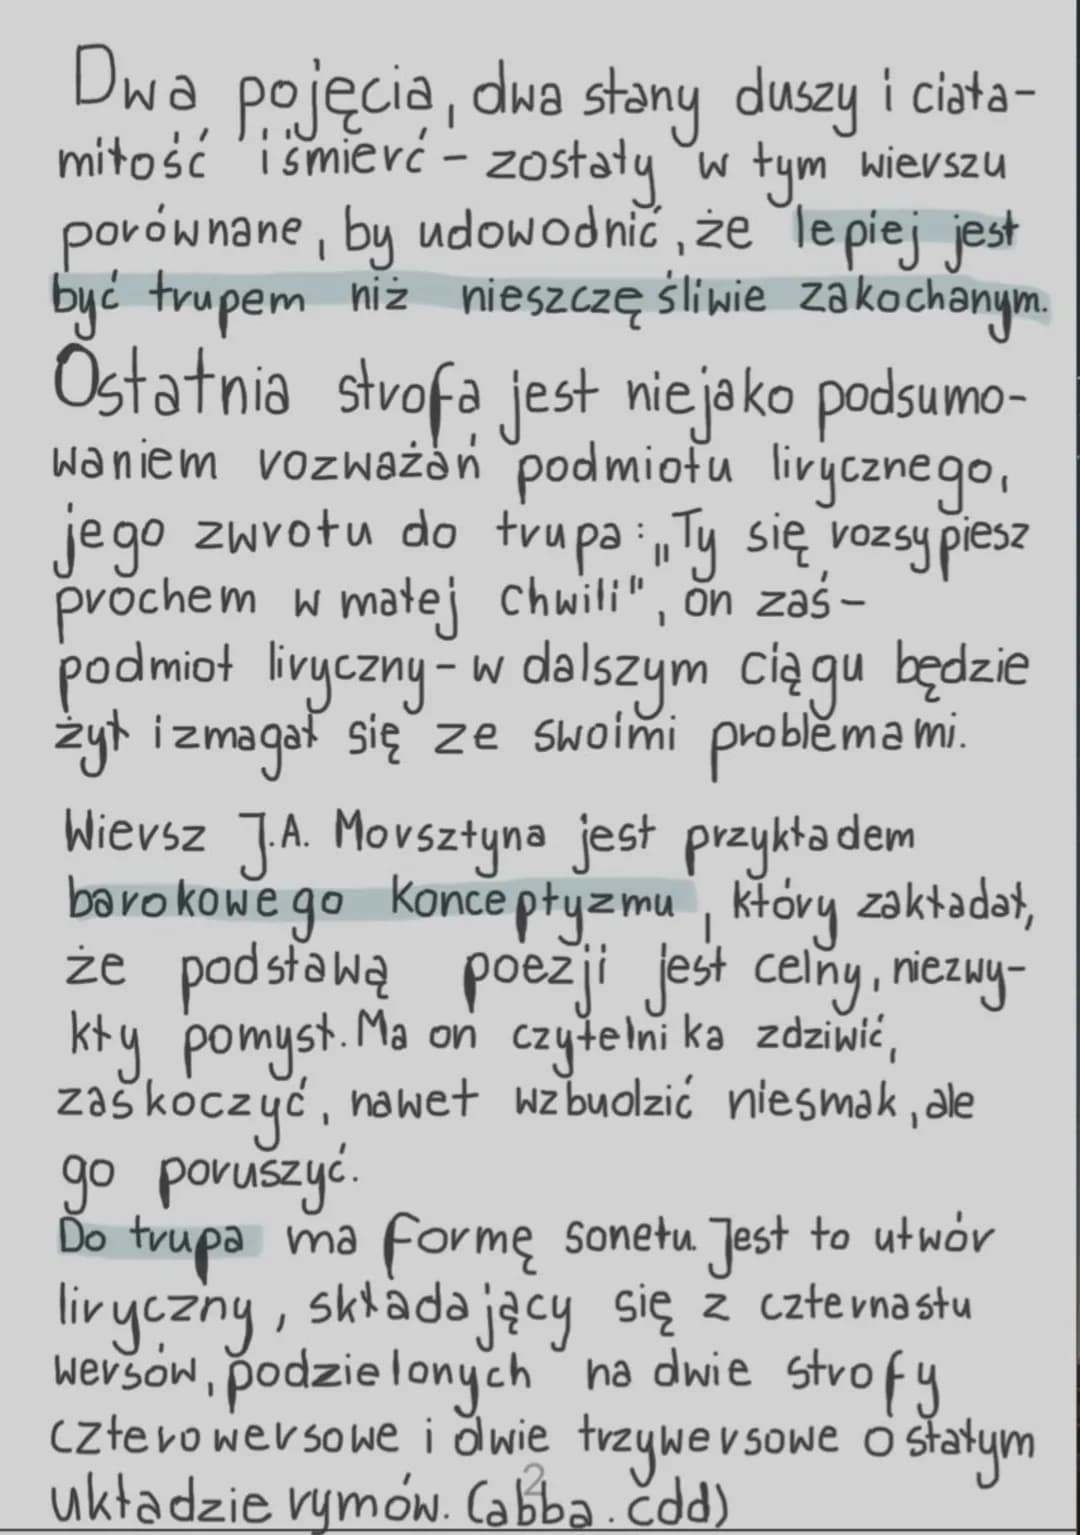 Dwa pojęcia, dwa stany duszy i ciała-
miłość i śmierć - zostały w tym wierszu
porównane, by udowodnić, że lepiej jest
być trupem niż nieszczęśliwie zakochanym.
Ostatnia strofa jest niejako podsumo-
waniem rozważań podmiotu lirycznego,
jego zwrotu do trupa: „Ty się rozsypiesz
prochem w małej chwili", on zaś -
podmiot liryczny - w dalszym ciągu będzie
żył i zmagał się ze swoimi problemami.
Wiersz J.A. Morsztyna jest przykładem
barokowego konceptyzmu, który zakładał,
że podstawą poezji jest celny, niezwy-
kły pomysł. Ma on czytelnika zdziwić,
zaskoczyć, nawet wzbudzić niesmak, ale
go poruszyć.
Do trupa ma formę sonetu. Jest to utwór
liryczny, składający się z czternastu
wersów, podzielonych na dwie strofy
czterowersowe i dwie trzywersowe o stałym
układzie rymów. (abba. cdd)
2